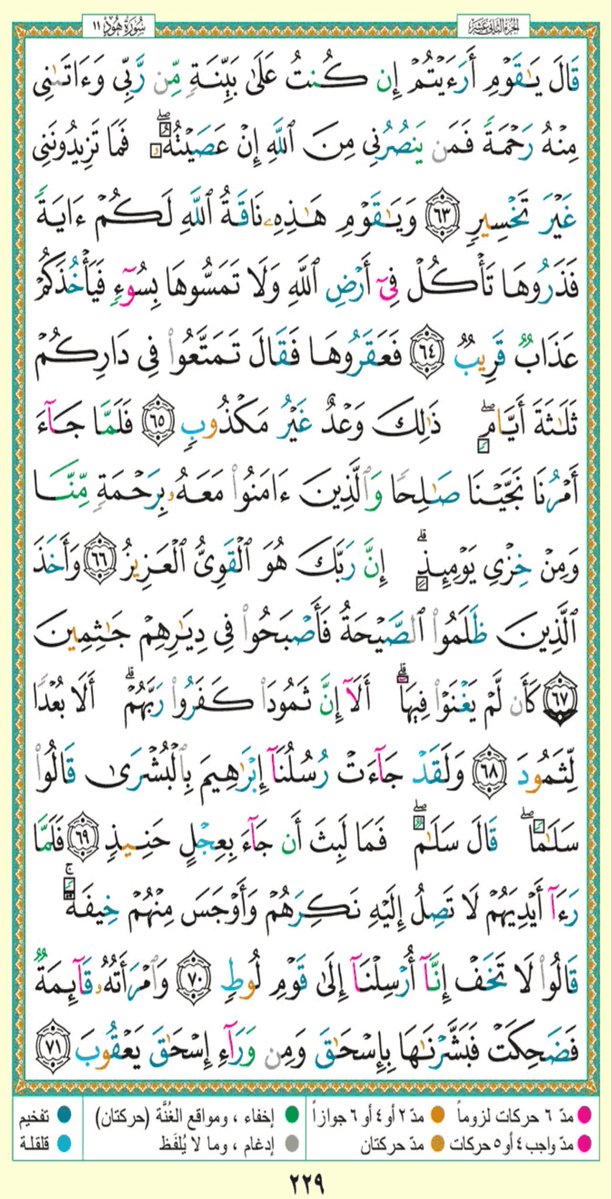 سُورَةُ هُودٍ ١١
الجُزْءُ الثَّانِي عَشَرَ
قَالَ يَٰقَوْمِ أَرَءَيْتُمْ إِن كُنتُ عَلَىٰ بَيِّنَةٍ مِّن رَّبِّى وَءَاتَىٰنِى
مِنْهُ رَحْمَةً فَمَن يَنصُرُنِى مِنَ ٱللَّهِ إِنْ عَصَيْتُهُۥ ۖ فَمَا تَزِيدُونَنِى
غَيْرَ تَخْسِيرٍ ٦٣ وَيَٰقَوْمِ هَٰذِهِۦ نَاقَةُ ٱللَّهِ لَكُمْ ءَايَةً
فَذَرُوهَا تَأْكُلْ فِىٓ أَرْضِ ٱللَّهِ وَلَا تَمَسُّوهَا بِسُوٓءٍ فَيَأْخُذَكُمْ
عَذَابٌ قَرِيبٌ ٦٤ فَعَقَرُوهَا فَقَالَ تَمَتَّعُوا۟ فِى دَارِكُمْ
ثَلَٰثَةَ أَيَّامٍ ۖ ذَٰلِكَ وَعْدٌ غَيْرُ مَكْذُوبٍ ٦٥ فَلَمَّا جَآءَ
أَمْرُنَا نَجَّيْنَا صَٰلِحًا وَٱلَّذِينَ ءَامَنُوا۟ مَعَهُۥ بِرَحْمَةٍ مِّنَّا
وَمِنْ خِزْىِ يَوْمِئِذٍ ۗ إِنَّ رَبَّكَ هُوَ ٱلْقَوِىُّ ٱلْعَزِيزُ ٦٦ وَأَخَذَ
ٱلَّذِينَ ظَلَمُوا۟ ٱلصَّيْحَةُ فَأَصْبَحُوا۟ فِى دِيَٰرِهِمْ جَٰثِمِينَ
٦٧ كَأَن لَّمْ يَغْنَوْا۟ فِيهَآ ۗ أَلَآ إِنَّ ثَمُودَا۟ كَفَرُوا۟ رَبَّهُمْ ۗ أَلَا بُعْدًا
لِّثَمُودَ ٦٨ وَلَقَدْ جَآءَتْ رُسُلُنَآ إِبْرَٰهِيمَ بِٱلْبُشْرَىٰ قَالُوا۟
سَلَٰمًا ۖ قَالَ سَلَٰمٌ ۖ فَمَا لَبِثَ أَن جَآءَ بِعِجْلٍ حَنِيذٍ ٦٩ فَلَمَّا
رَءَآ أَيْدِيَهُمْ لَا تَصِلُ إِلَيْهِ نَكِرَهُمْ وَأَوْجَسَ مِنْهُمْ خِيفَةً ۚ
قَالُوا۟ لَا تَخَفْ إِنَّآ أُرْسِلْنَآ إِلَىٰ قَوْمِ لُوطٍ ٧٠ وَٱمْرَأَتُهُۥ قَآئِمَةٌ
فَضَحِكَتْ فَبَشَّرْنَٰهَا بِإِسْحَٰقَ وَمِن وَرَآءِ إِسْحَٰقَ يَعْقُوبَ ٧١
مدّ ٦ حركات لزوماً مدّ ٢ أو ٤ أو ٦ جوازاً إخفاء ، ومواقع الغُنَّة (حركتان) تفخيم
مدّ واجب ٤ أو ٥ حركات مدّ حركتان إدغام ، وما لا يُلفَظ قلقلة
٢٢٩